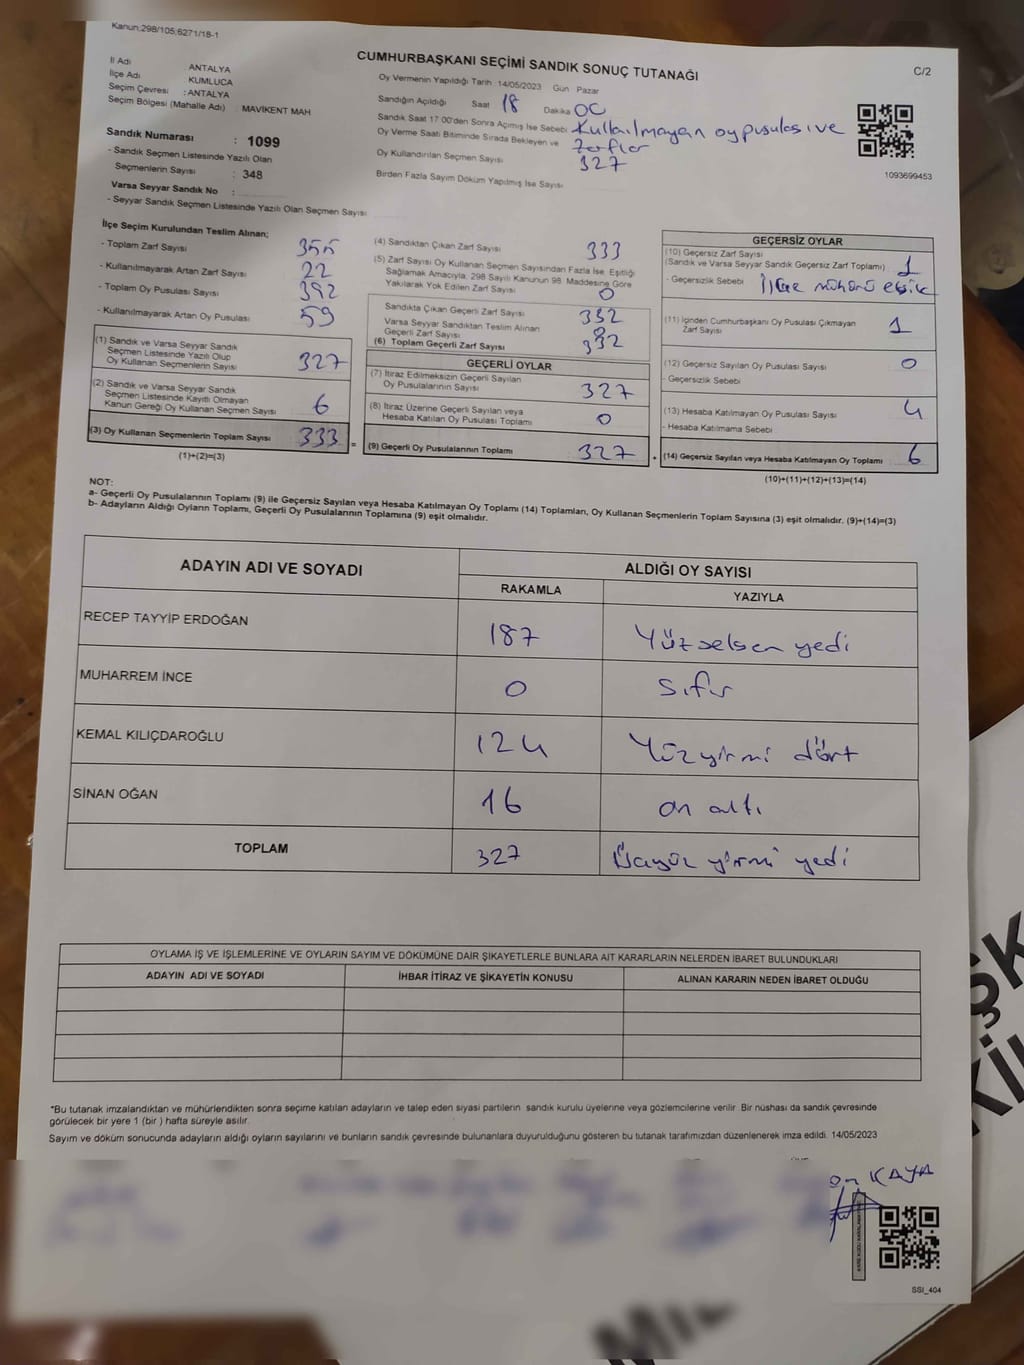 Kanun:298/105;6271/18-1
CUMHURBAŞKANI SEÇİMİ SANDIK SONUÇ TUTANAĞI
C/2
İl Adı ANTALYA
İlçe Adı KUMLUCA
Seçim Çevresi : ANTALYA
Seçim Bölgesi (Mahalle Adı) MAVİKENT MAH
Oy Vermenin Yapıldığı Tarih :14/05/2023 Gün Pazar
Sandığın Açıldığı Saat 18 Dakika 00
Sandık Saat 17:00'den Sonra Açmış İse Sebebi Kullanılmayan oy pusulası ve
Oy Verme Saati Bitiminde Sırada Bekleyen ve zarflar
Oy Kullandırılan Seçmen Sayısı 327
Birden Fazla Sayım Döküm Yapılmış İse Sayısı
1093699453
Sandık Numarası : 1099
- Sandık Seçmen Listesinde Yazılı Olan
Seçmenlerin Sayısı : 348
Varsa Seyyar Sandık No :
- Seyyar Sandık Seçmen Listesinde Yazılı Olan Seçmen Sayısı
İlçe Seçim Kurulundan Teslim Alınan;
- Toplam Zarf Sayısı 355
- Kullanılmayarak Artan Zarf Sayısı 22
- Toplam Oy Pusulası Sayısı 392
- Kullanılmayarak Artan Oy Pusulası 59
(1) Sandık ve Varsa Seyyar Sandık
Seçmen Listesinde Yazılı Olup
Oy Kullanan Seçmenlerin Sayısı 327
(2) Sandık ve Varsa Seyyar Sandık
Seçmen Listesinde Kayıtlı Olmayan
Kanun Gereği Oy Kullanan Seçmen Sayısı 6
(3) Oy Kullanan Seçmenlerin Toplam Sayısı 333 =
(1)+(2)=(3)
(4) Sandıktan Çıkan Zarf Sayısı 333
(5) Zarf Sayısı Oy Kullanan Seçmen Sayısından Fazla İse, Eşitliği
Sağlamak Amacıyla, 298 Sayılı Kanunun 98. Maddesine Göre
Yakılarak Yok Edilen Zarf Sayısı 0
Sandıkta Çıkan Geçerli Zarf Sayısı 332
Varsa Seyyar Sandıktan Teslim Alınan
Geçerli Zarf Sayısı 0
(6) Toplam Geçerli Zarf Sayısı 332
GEÇERLİ OYLAR
(7) İtiraz Edilmeksizin Geçerli Sayılan
Oy Pusulalarının Sayısı 327
(8) İtiraz Üzerine Geçerli Sayılan veya
Hesaba Katılan Oy Pusulası Toplamı 0
(9) Geçerli Oy Pusulalarının Toplamı 327 +
GEÇERSİZ OYLAR
(10) Geçersiz Zarf Sayısı
(Sandık ve Varsa Seyyar Sandık Geçersiz Zarf Toplamı) 1
- Geçersizlik Sebebi İlçe mührü eksik
(11) İçinden Cumhurbaşkanı Oy Pusulası Çıkmayan
Zarf Sayısı 1
(12) Geçersiz Sayılan Oy Pusulası Sayısı 0
- Geçersizlik Sebebi
(13) Hesaba Katılmayan Oy Pusulası Sayısı 4
- Hesaba Katılmama Sebebi
(14) Geçersiz Sayılan veya Hesaba Katılmayan Oy Toplamı 6
(10)+(11)+(12)+(13)=(14)
NOT:
a- Geçerli Oy Pusulalarının Toplamı (9) ile Geçersiz Sayılan veya Hesaba Katılmayan Oy Toplamı (14) Toplamları, Oy Kullanan Seçmenlerin Toplam Sayısına (3) eşit olmalıdır. (9)+(14)=(3)
b- Adayların Aldığı Oyların Toplamı, Geçerli Oy Pusulalarının Toplamına (9) eşit olmalıdır.
ADAYIN ADI VE SOYADI ALDIĞI OY SAYISI
RAKAMLA YAZIYLA
RECEP TAYYİP ERDOĞAN 187 Yüzseksen yedi
MUHARREM İNCE 0 Sıfır
KEMAL KILIÇDAROĞLU 124 Yüzyirmi dört
SİNAN OĞAN 16 on altı
TOPLAM 327 Üçyüz yirmi yedi
OYLAMA İŞ VE İŞLEMLERİNE VE OYLARIN SAYIM VE DÖKÜMÜNE DAİR ŞİKAYETLERLE BUNLARA AİT KARARLARIN NELERDEN İBARET BULUNDUKLARI
ADAYIN ADI VE SOYADI İHBAR İTİRAZ VE ŞİKAYETİN KONUSU ALINAN KARARIN NEDEN İBARET OLDUĞU
*Bu tutanak imzalandıktan ve mühürlendikten sonra seçime katılan adayların ve talep eden siyasi partilerin sandık kurulu üyelerine veya gözlemcilerine verilir. Bir nüshası da sandık çevresinde
görülecek bir yere 1 (bir ) hafta süreyle asılır.
Sayım ve döküm sonucunda adayların aldığı oyların sayılarını ve bunların sandık çevresinde bulunanlara duyurulduğunu gösteren bu tutanak tarafımızdan düzenlenerek imza edildi. 14/05/2023
KAYA
SSI_404